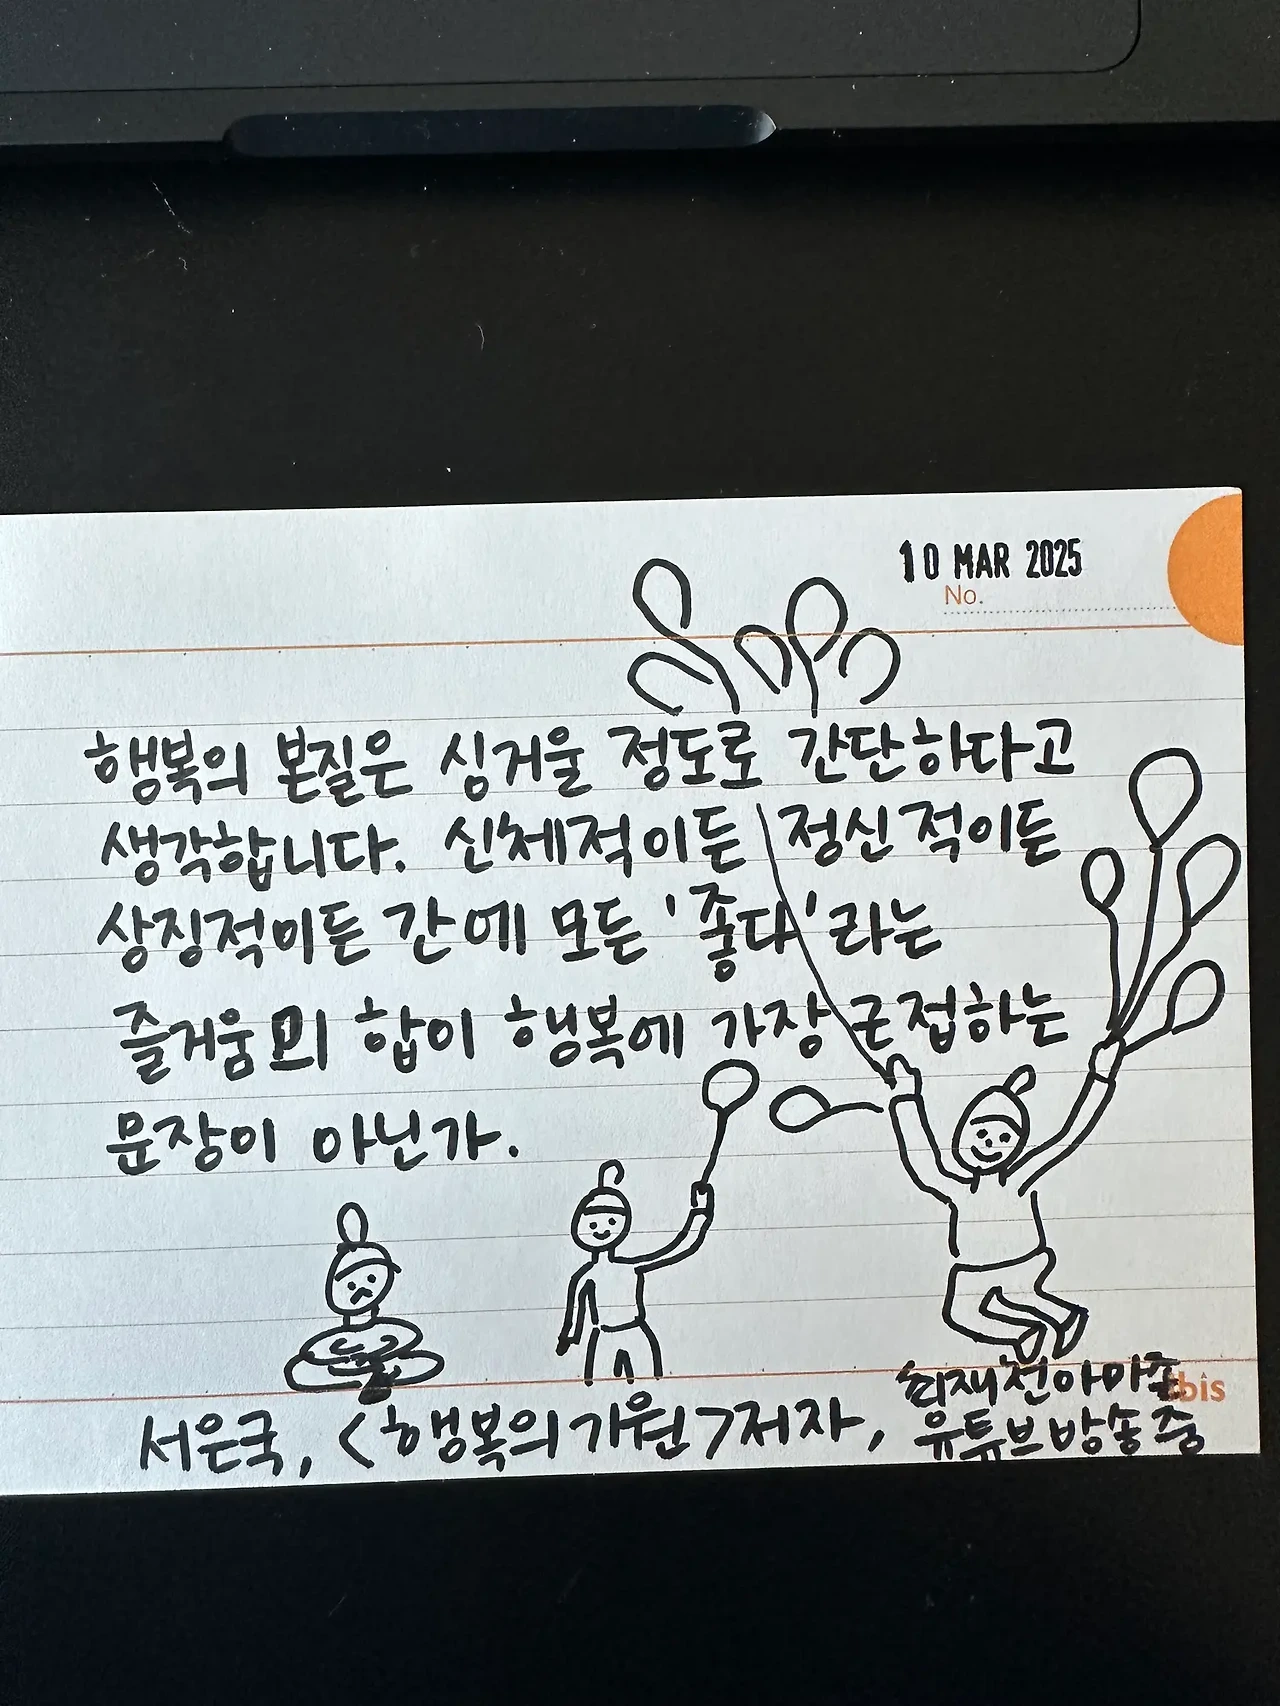 10 MAR 2025
No.
행복의 본질은 싱거울 정도로 간단하다고
생각합니다. 신체적이든 정신적이든
상징적이든 간에 모든 '좋다'라는
즐거움의 합이 행복에 가장 근접하는
문장이 아닌가.
서은국, <행복의 기원> 저자,
최재천의 아마존
유튜브 방송 중
ibis